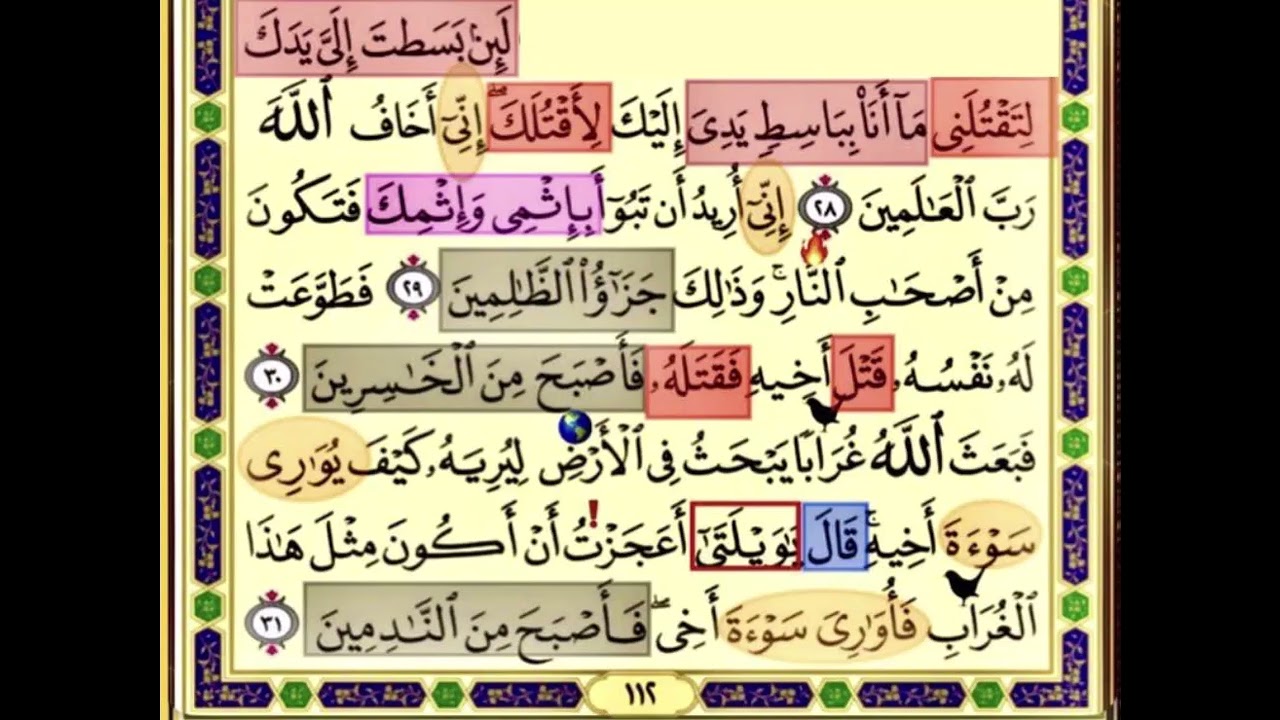 لَئِنۢ بَسَطتَ إِلَىَّ يَدَكَ
لِتَقْتُلَنِى مَآ أَنَا۠ بِبَاسِطٍ يَدِىَ إِلَيْكَ لِأَقْتُلَكَ ۖ إِنِّىٓ أَخَافُ ٱللَّهَ
رَبَّ ٱلْعَـٰلَمِينَ ٢٨ إِنِّىٓ أُرِيدُ أَن تَبُوٓأَ بِإِثْمِى وَإِثْمِكَ فَتَكُونَ
مِنْ أَصْحَـٰبِ ٱلنَّارِ ۚ وَذَٰلِكَ جَزَٰٓؤُا۟ ٱلظَّـٰلِمِينَ ٢٩ فَطَوَّعَتْ
لَهُۥ نَفْسُهُۥ قَتْلَ أَخِيهِ فَقَتَلَهُۥ فَأَصْبَحَ مِنَ ٱلْخَـٰسِرِينَ ٣٠
فَبَعَثَ ٱللَّهُ غُرَابًا يَبْحَثُ فِى ٱلْأَرْضِ لِيُرِيَهُۥ كَيْفَ يُوَٰرِى
سَوْءَةَ أَخِيهِ ۚ قَالَ يَـٰوَيْلَتَىٰٓ أَعَجَزْتُ أَنْ أَكُونَ مِثْلَ هَـٰذَا
ٱلْغُرَابِ فَأُوَٰرِىَ سَوْءَةَ أَخِى ۖ فَأَصْبَحَ مِنَ ٱلنَّـٰدِمِينَ ٣١
١١٢